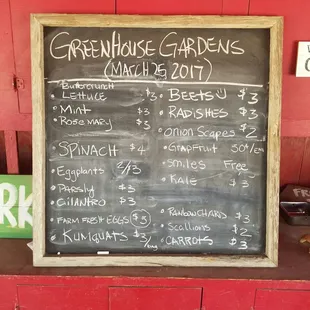 GREENHOUSE GARDENS
(MARCH 25, 2017)
Buttercrunch
LETTUCE $3
Mint $3
Rosemary $3
SPINACH $4
Eggplants 2/3
PARSLY $3
CILANTRO $3
FARM FRESH EGGS $3
KUMQUATS $3
BEETS $3
RADISHES $3
Onion Scapes $2
GRAPEFRUIT 50¢/EA
Smiles Free
Kale $3
RAINBOW CHARD $3
Scallions $2
CARROTS $3
RK